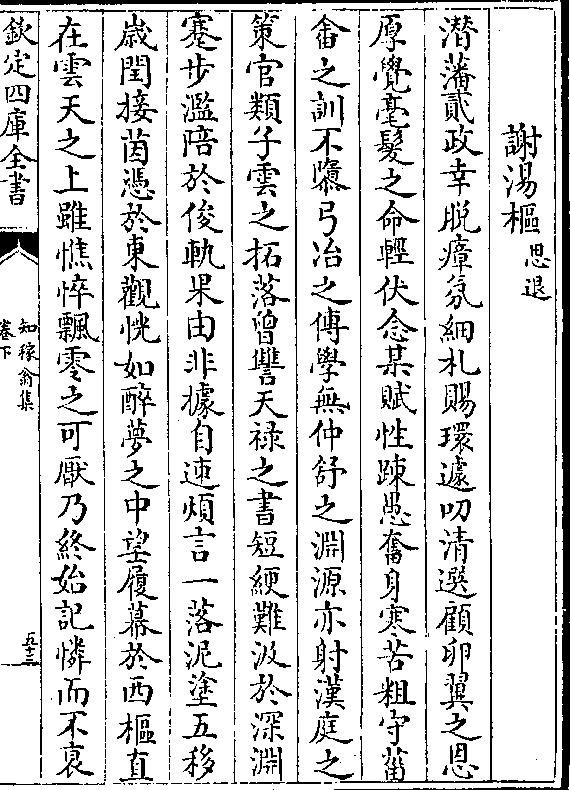 謝湯樞思退
潜藩貳政幸脫瘴氛細札賜環遽叨清選顧卵翼之恩
厚覺毫髮之命輕伏念某賦性踈愚奮身寒苦粗守菑
畬之訓不隳弓冶之傳學無仲舒之淵源亦射漢庭之
策官類子雲之拓落曾讐天禄之書短綆難汲於深淵
蹇步濫陪於俊軌果由非據自速煩言一落泥塗五移
歳閏接茵憑於東觀恍如醉夢之中望履幕於西樞直
在雲天之上雖憔悴飄零之可厭乃終始記憐而不衰
欽定四庫全書
知稼翁集
卷下
五十三